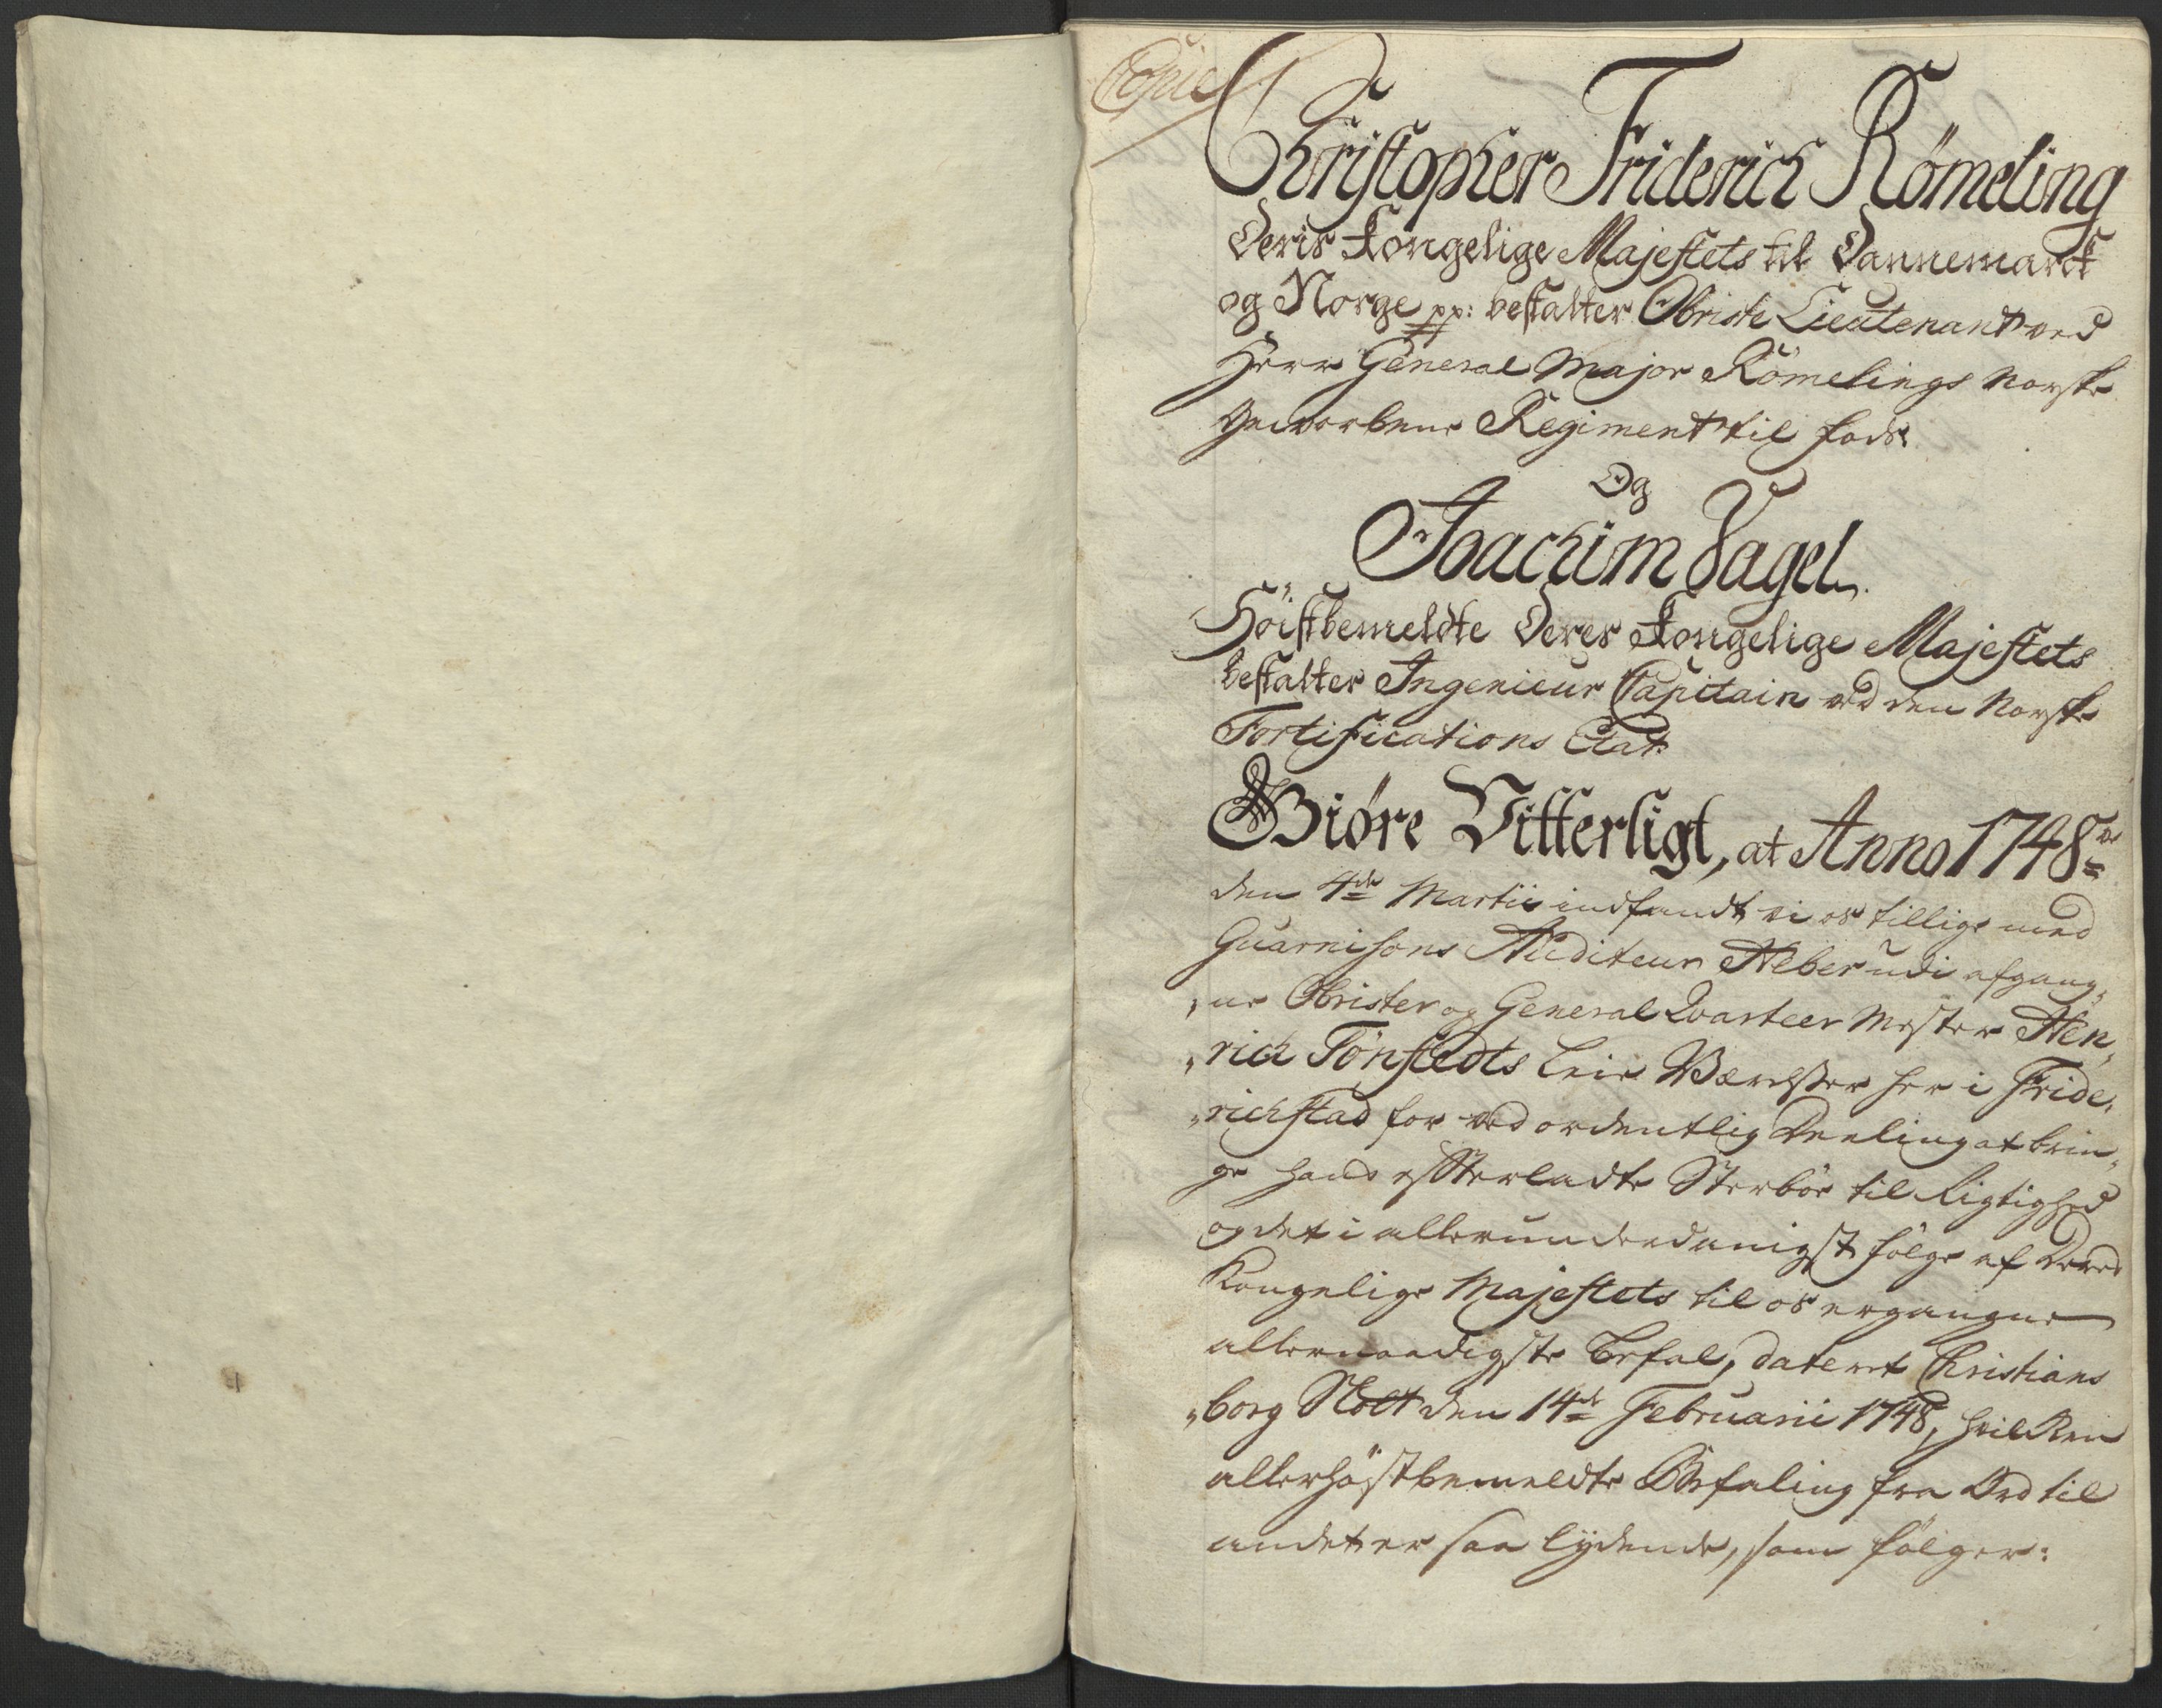 Copie
Christopher Friderich Römeling
Deris Kongelige Majestets til Dannemarck
og Norge pp: bestalter Obriste Lieutenant ved
Herr General Major Römelings Norske
Gevorbene Regiment til Fods
Og
Joachim Vagel
Höistbemeldte Deres Kongelige Majestets
bestalter Ingenieur Capitain ved den Norske
Fortifications Etat
Giöre Vitterligt, at Anno 1748
den 4de Martii indfandt vi os tillige med
Guarnisons Auditeur Heber udi afgang„
„ne Obrister og General Qvarteer Mester Hen„
„rich Tönsedts Leie Værelser her i Fride„
„richstad for ved ordentlig Deeling at brin„
ge hans efterladte Sterboe til Rigtighed
og det i allerunderdanigst fölge af Deres
Kongelige Majestets til os ergangne
allernaadigste Befal, dateret Christians
„borg Slott den 14de Februarii 1748, hvilken
allerhöistbemeldte Befaling fra Ord til
andet er saa lydende, som fölger: